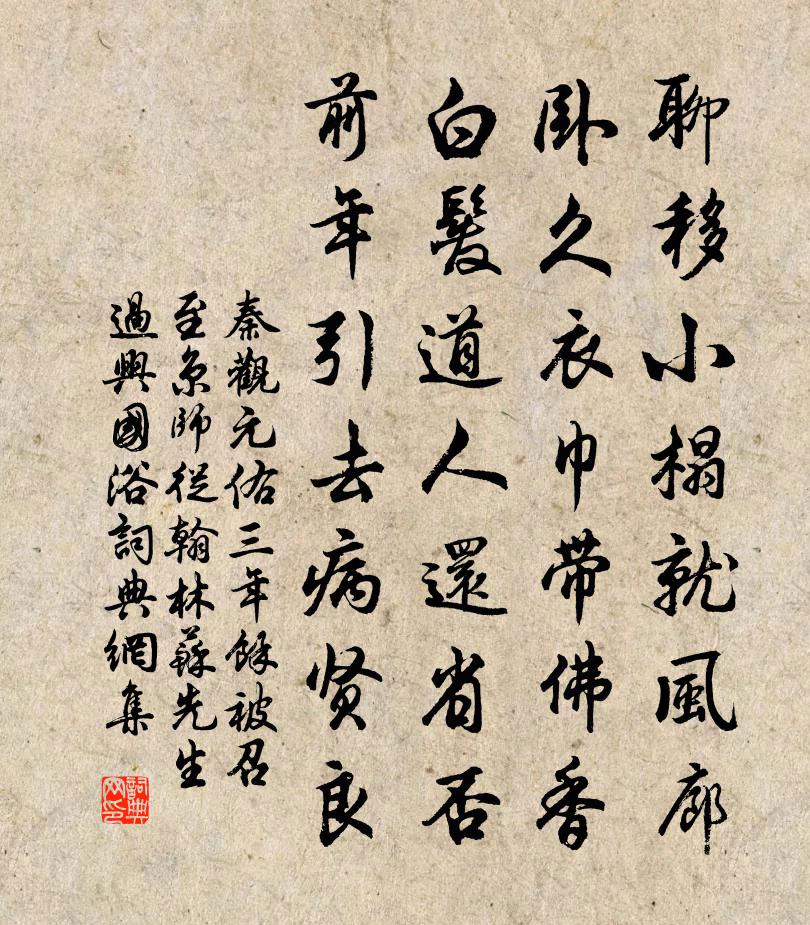 聊移小榻就風廊
臥久衣巾帶佛香
白髮道人還省否
前年引去病贤良
秦觀元佑三年餘被召
至京師從翰林蘇先生
過興國浴詞典網集
詞典网印